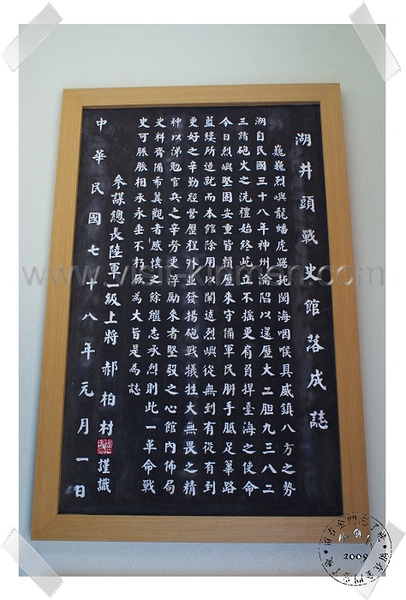 湖井頭戰史館落成誌
巍巍烈嶼龍蟠虎躍扼閩海咽喉具威鎮八方之勢
湖自民國三十八年神州淪陷以還歷大二胆九三八二
三諸砲火之洗禮始終屹立不搖更肩負捍臺海之使命
今日烈嶼堅固安重皆賴歷來守備軍民胼手胝足篳路
藍縷所造就而本館除用以闡述烈嶼從無到有從有到
更好之辛勤經營歷程外並發揚砲戰犧牲大無畏之精
神以涕勉官兵之辛勞更淬勵來者堅毅之心館內佈局
史料齊備希冀觀者感懷之餘繼志承烈則此一革命戰
史可脈脈相承永垂不朽厥為大旨是為誌
參謀總長陸軍一級上將郝柏村謹識
中華民國七十八年元月一日
www.visit-kinmen.com
2009